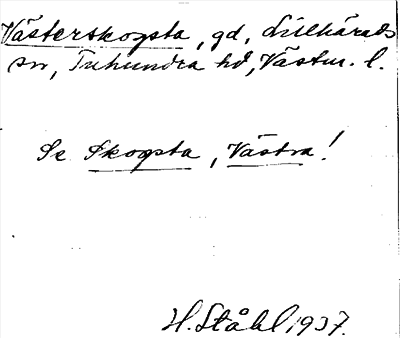 Västerskogsta, gd, Lillhärads
sn, Tuhundra hd, Västm. l.
Se Skogsta, Västra!
H. Ståhl 1937.